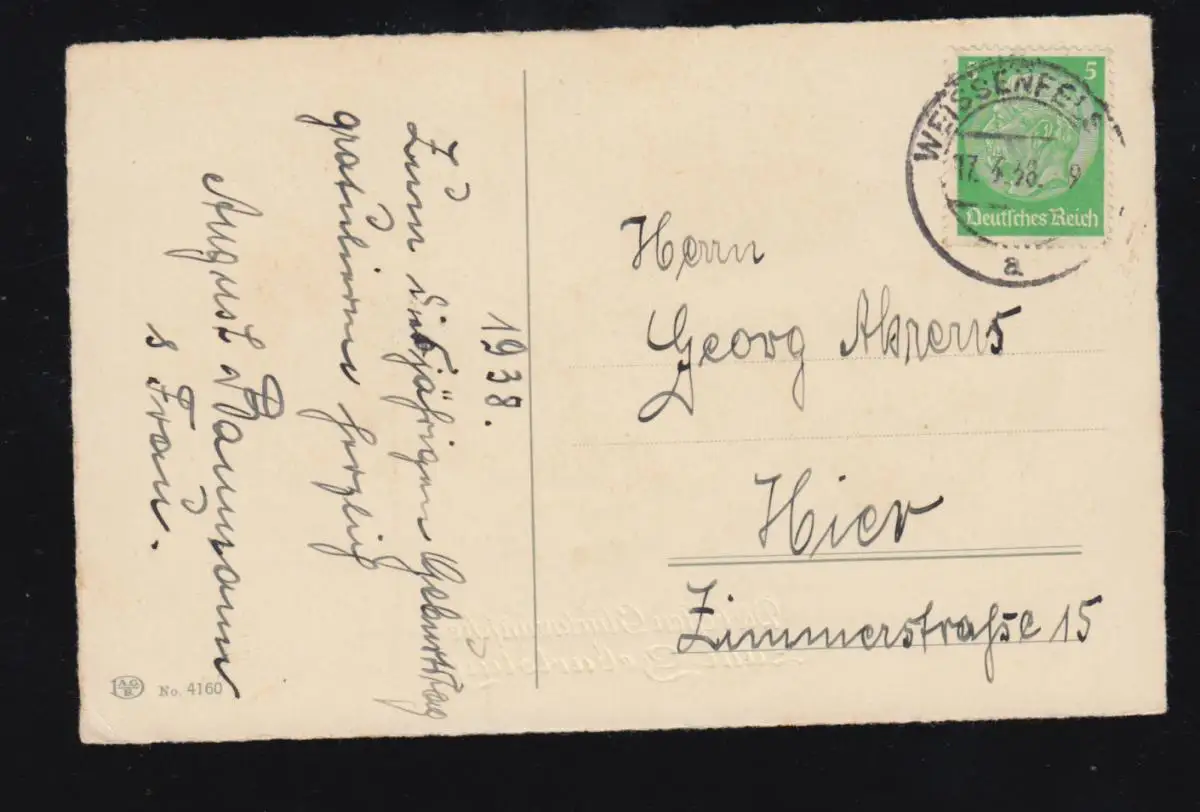 1938.
Zum diesjährigen Geburtstag
gratulieren herzlich
August Baumann
& Frau.
5
Deutsches Reich
WEISSENFELS
17.4.38. 9
a
Herrn
Georg Ahrens
Hier
Zimmerstraße 15
A.G.
B.
No. 4160